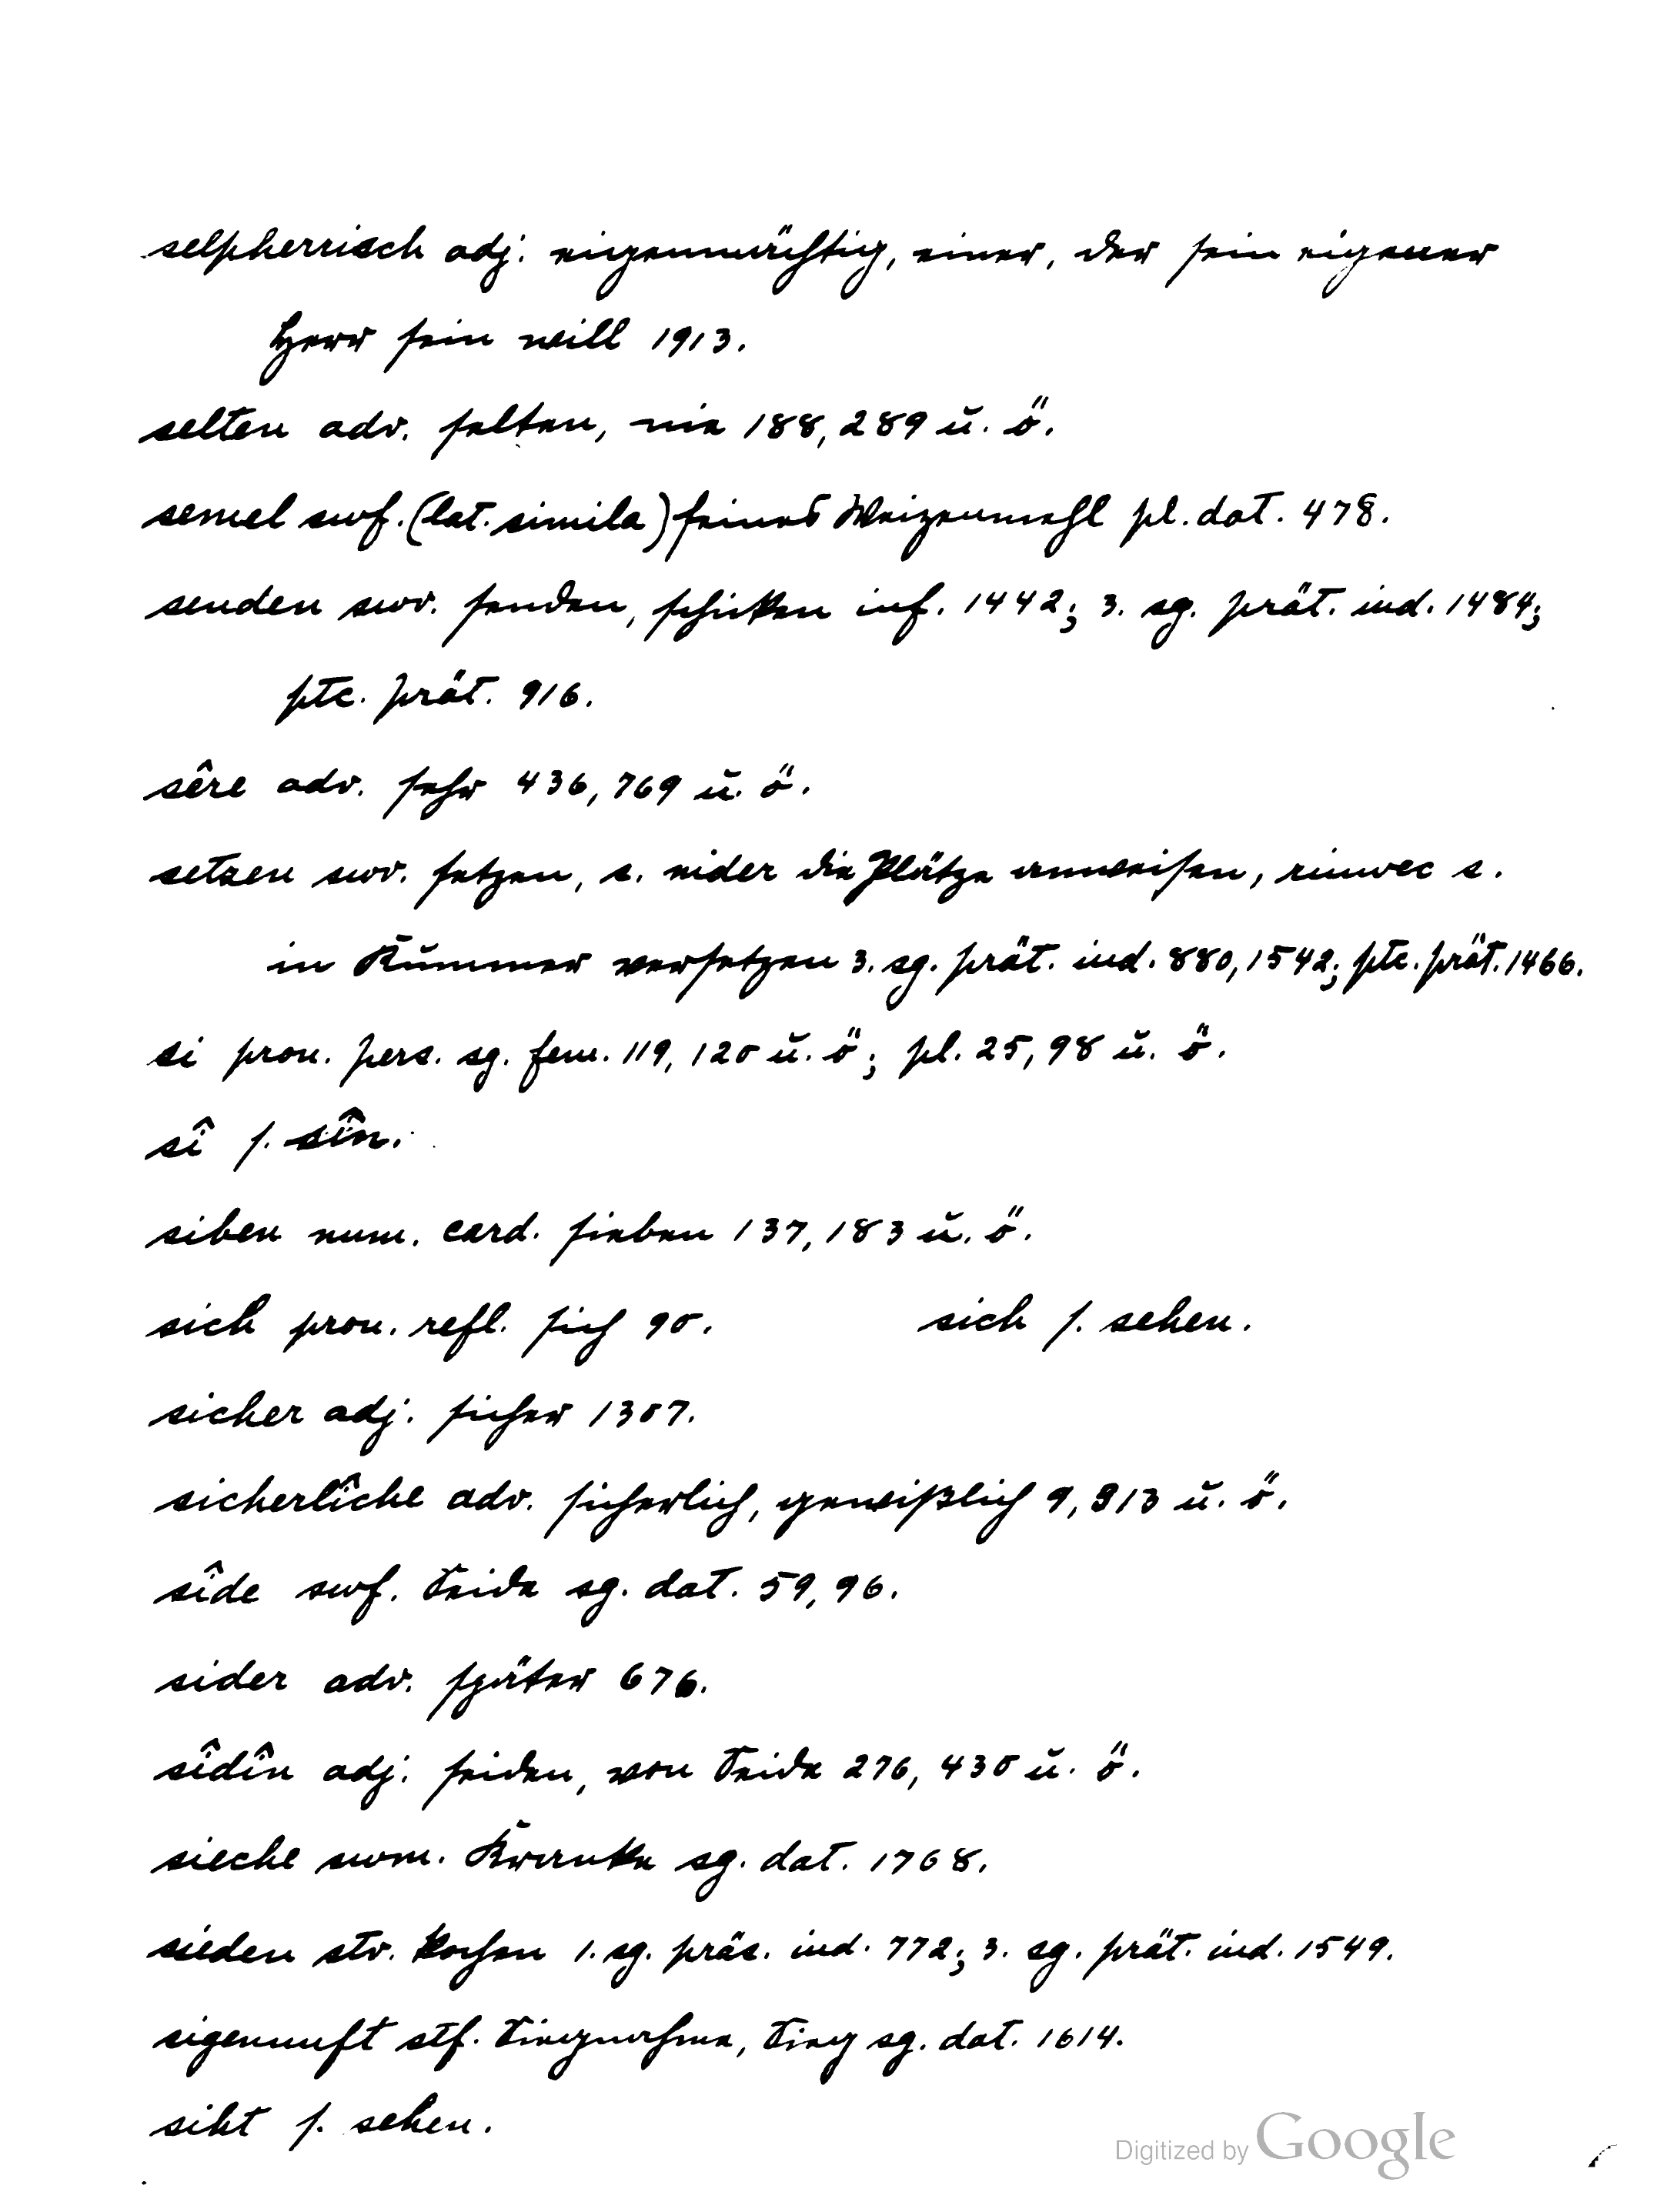 selpherrisch adj. eigenmächtig, einer, der sein eigener
Herr sein will 1913.
selten adv. selten, nie 188, 289 u. ö.
semel swf. (lat. simila) feines Weizenmehl pl. dat. 478.
senden swv. senden, schicken inf. 1442; 3. sg. prät. ind. 1484;
ptc. prät. 916.
sêre adv. sehr 436, 769 u. ö.
setzen swv. setzen, s. nider die Plätze anweisen, riuwec s.
in Kummer versetzen 3. sg. prät. ind. 880, 1542; ptc. prät. 1466.
si pron. pers. sg. fem. 119, 120 u. ö; pl. 25, 98 u. ö.
sî s. sîn.
siben num. card. sieben 137, 183 u. ö.
sich pron. refl. sich 90. sich s. sehen.
sicher adj. sicher 1307.
sicherlîche adv. sicherlich, gewißlich 9, 913 u. ö.
sîde swf. Seide sg. dat. 59, 96.
sider adv. später 676.
sîdîn adj. seiden, von Seide 276, 430 u. ö.
sieche swm. Kranke sg. dat. 1768.
sieden stv. kochen 1. sg. präs. ind. 772; 3. sg. prät. ind. 1549.
sigenunft stf. Siegnahme, Sieg sg. dat. 1614.
siht s. sehen.
Digitized by Google